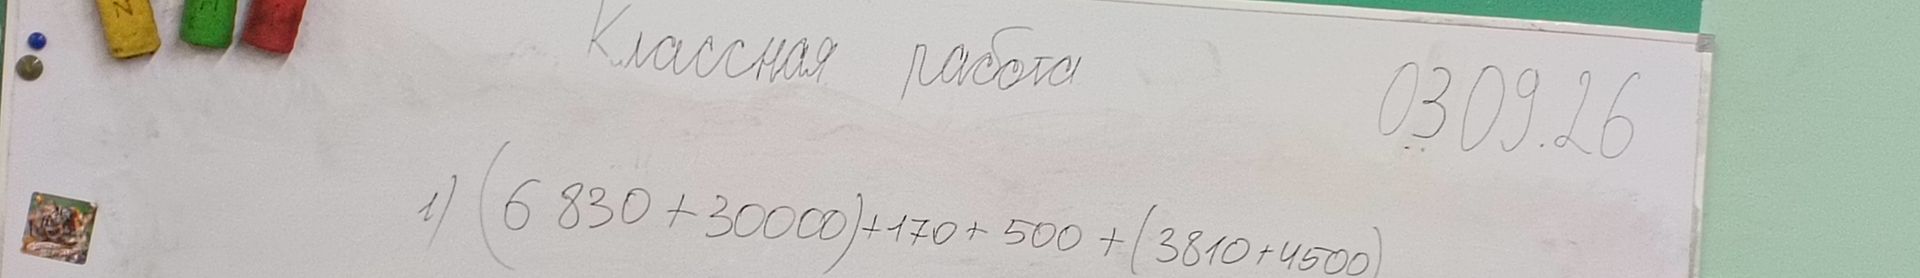 Классная работа
03 09.26
1) (6 830 + 30000) + 170 + 500 + (3810 + 4500)